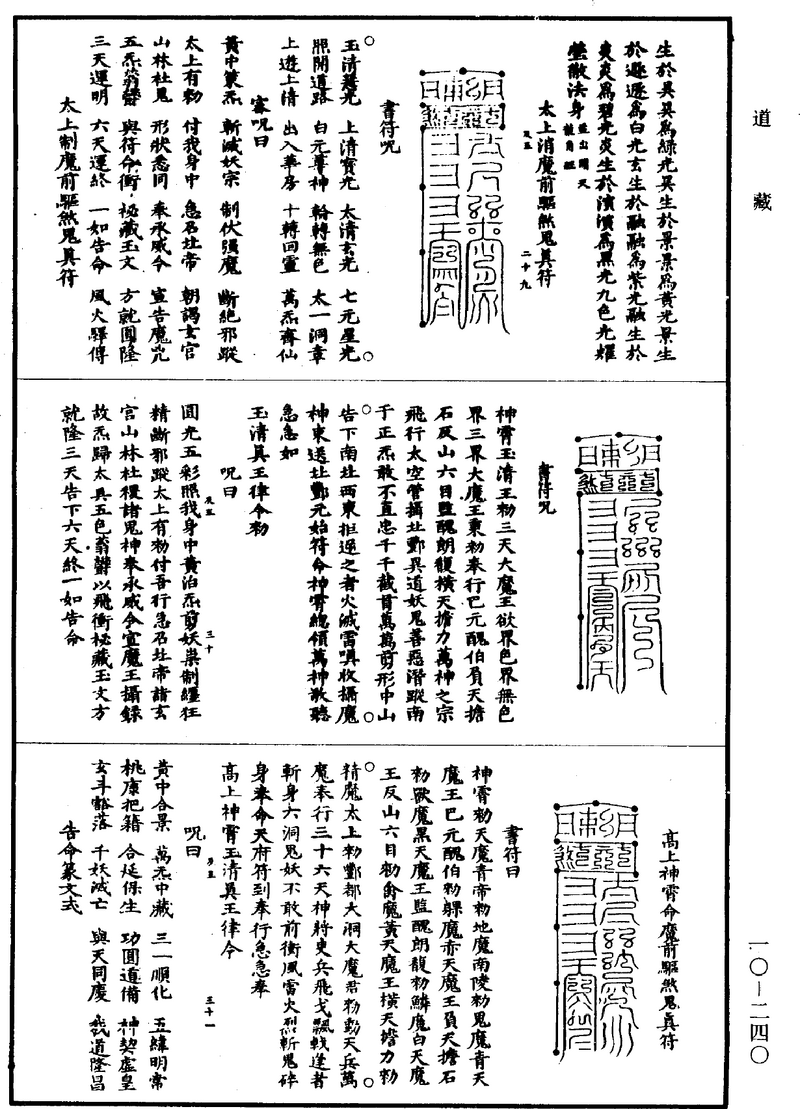 道藏
一〇—二四〇
生於異異為綠光異生於景景為黃光景生
於遯遯為白光玄生於融融為紫光融生於
炎炎為碧光炎生於演演為黑光九色光耀
瑩徹法身
太上消魔前驅煞鬼真符
二十九
書符呪
玉清慧光 上清寶光 太清玄光 七元星光
照開道路 白元尊神 輪轉無色 太一洞章
上遊上清 出入華房 十轉回靈 萬炁齊仙
密呪曰
黃中策炁 斬滅妖宗 制伏強魔 斷絕邪蹤
太上有勑 付我身中 急召北帝 朝謁玄官
山林社鬼 形狀悉同 奉承威令 宣告魔咒
五炁蓊鬱 與符命衝 祕藏玉文 方就圓隆
三天運明 六天運終 一如告命 風火驛傳
太上制魔前驅煞鬼真符
書符呪
神霄玉清王勑三天大魔王欲界色界無色
界三界大魔王東勑奉行巴元醜伯負天擔
石反山六目監醜朗馥橫天擔力萬神之宗
飛行太空管攝北酆異道妖鬼善惡潛蹤南
于正炁敢不直忠千千截首萬萬剪形中山
告下南北西東拒逆之者火滅雷嗔收攝魔
神東送北酆元始符命神霄總領萬神敬聽
急急如
玉清真王律令勑
呪曰
圓光五彩照我身中黃治炁剪妖祟制纆狂
三十
精斷邪蹤太上有勑付吾行急召北帝諸玄
官山林社稷諸鬼神奉承威令宣魔王攝錄
故炁歸太真五色蓊鬱以飛衝祕藏玉文方
就隆三天告下六天終一如告命
高上神霄命魔前驅煞鬼真符
書符曰
神霄勑天魔青帝勑地魔南陵勑鬼魔青天
魔王巴元醜伯勑躶魔赤天魔王負天擔石
勑獸魔黑天魔王監醜朗馥勑鱗魔白天魔
王反山六目勑禽魔黃天魔王橫天擔力勑
精魔太上勑酆都大洞大魔君勑動天兵萬
魔奉行三十六天神將吏兵飛戈飄戟逢者
斬身六洞鬼妖不敢前衝風雷火烈斬鬼碎
身奉命天府符到奉行急急奉
高上神霄玉清真王律令
三十一
呪曰
黃中合景 萬炁中藏 三一順化 五緯明常
桃康把籍 合延保生 功圓道備 神契虛皇
玄斗豁落 千妖滅亡 與天同慶 我道隆昌
告命篆文式